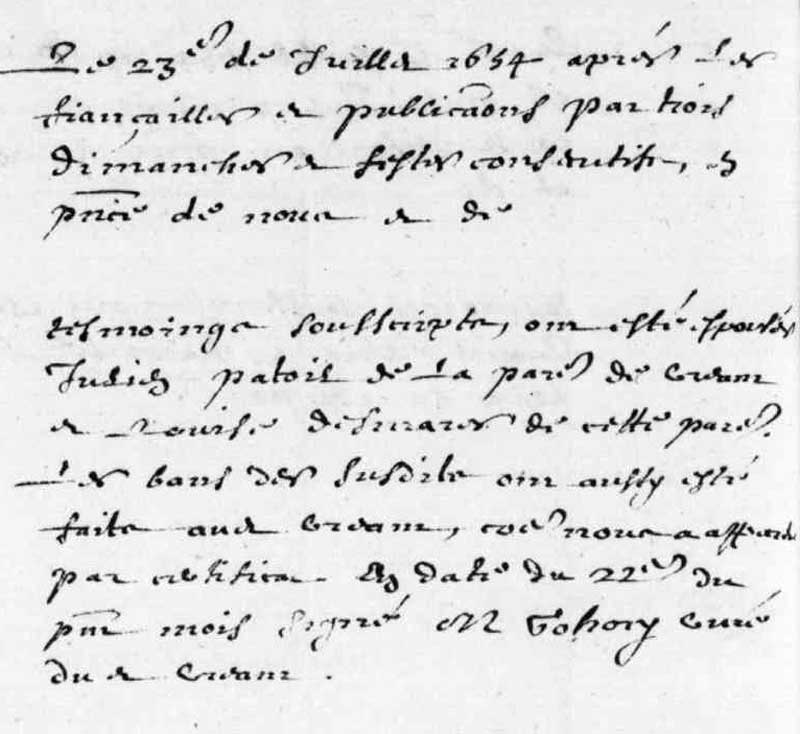 Le 23e de Juillet 1654 aprés Les
fiançailles et publicaons par trois
dimanches et festes consecutifs, en
pnce de nous et de
tesmoings soubscripts, ont esté espousés
Julien patoil de La parse de Creant
et Louise desmares de cette parse.
Les bans des susdits ont aussy esté
faits aud Creant, coe nous a apparu
par certificat En date du 22e du
pnt mois signé M Gohory Curé
dud Creant.